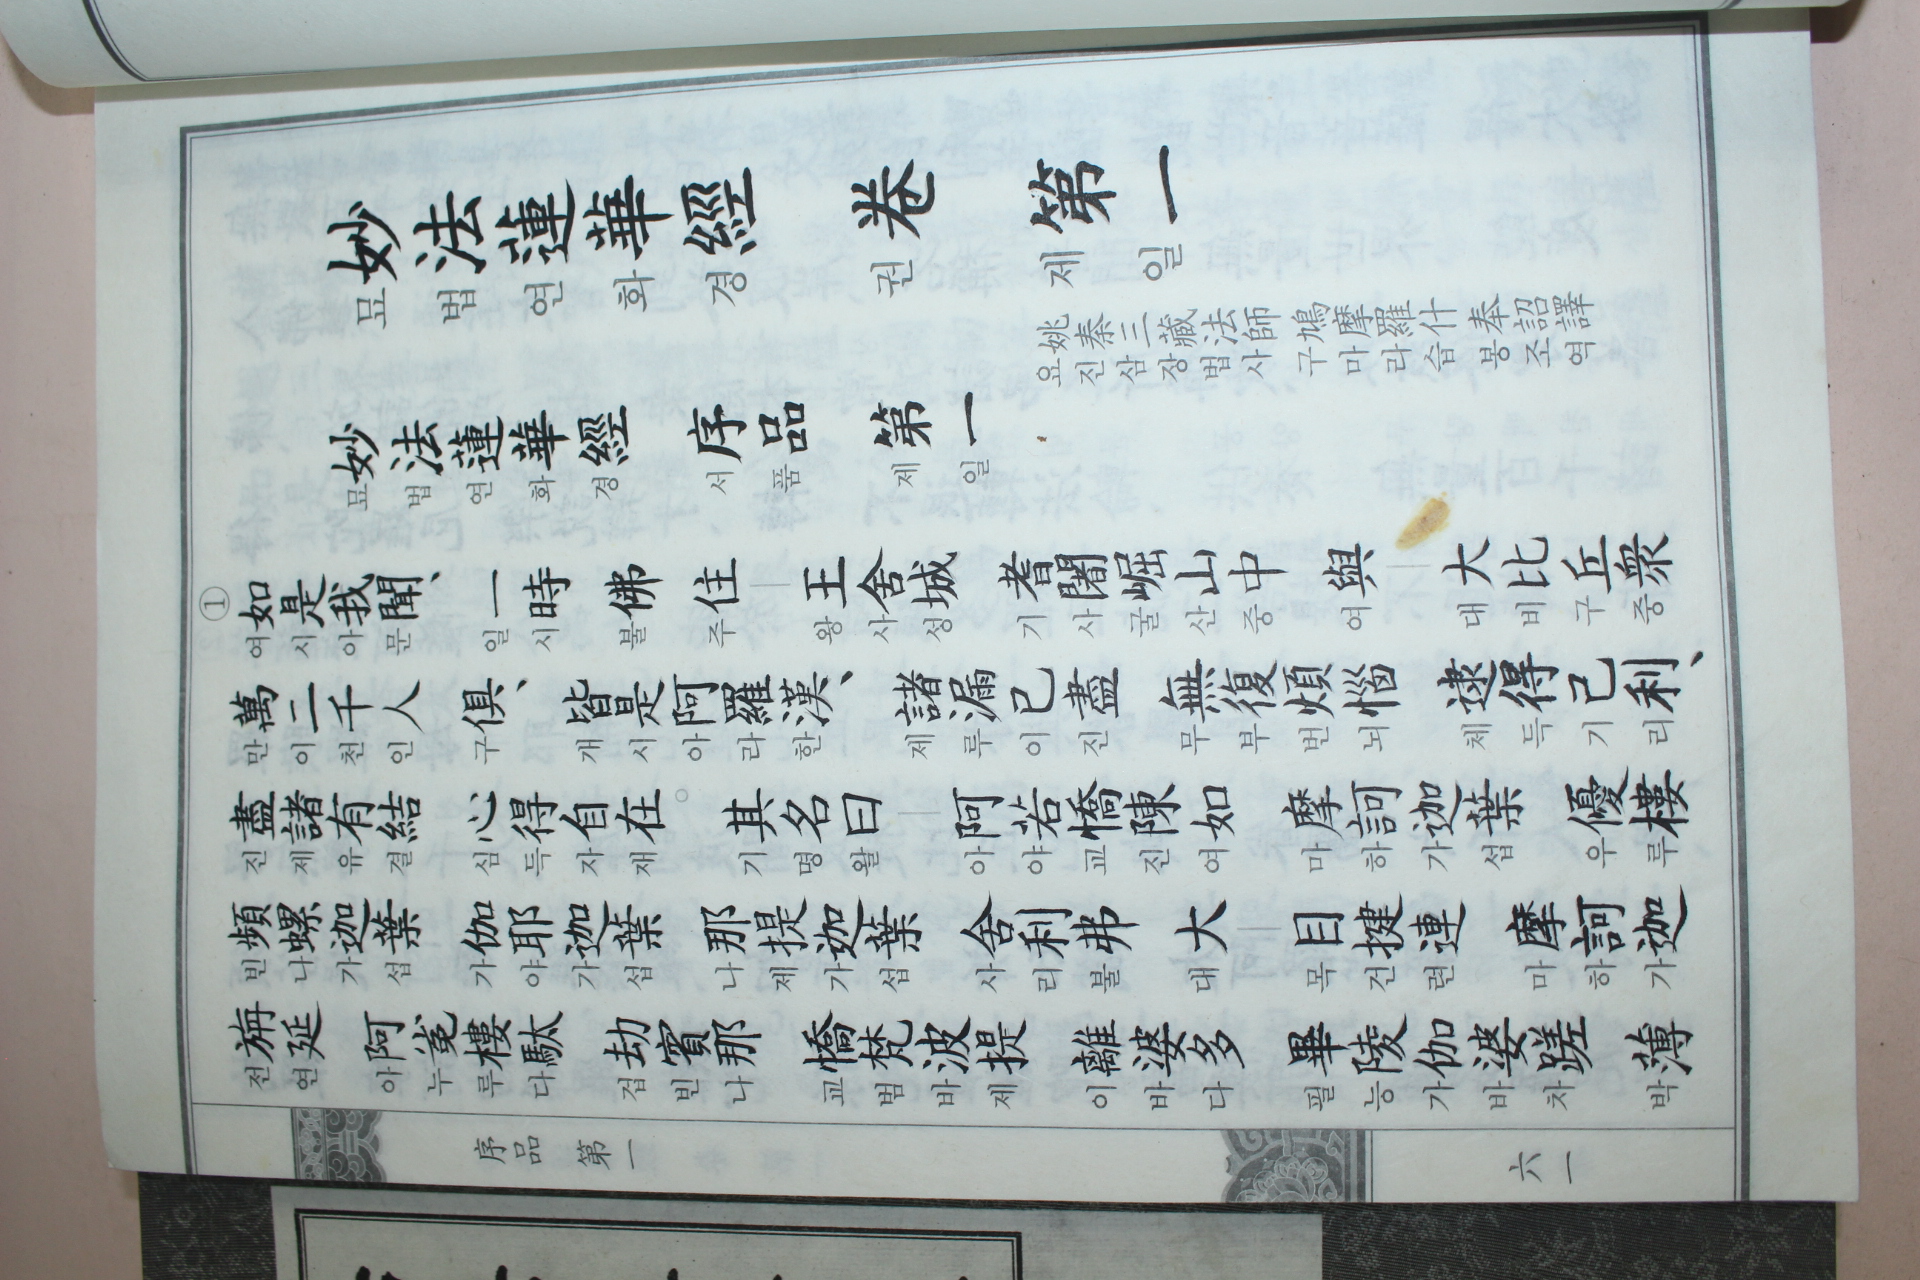 妙法蓮華經 卷 第一
묘법연화경 권 제일
姚秦三藏法師 鳩摩羅什 奉詔譯
요진삼장법사 구마라습 봉조역
妙法蓮華經 序品 第一
묘법연화경 서품 제일
①
如是我聞、一時 佛 住 王舍城 耆闍崛山中 與 大比丘衆
여시아문 일시 불 주 왕사성 기사굴산중 여 대비구중
萬二千人 俱、皆是阿羅漢、諸漏已盡 無復煩惱 逮得己利、
만이천인 구 개시아라한 제루이진 무부번뇌 체득기리
盡諸有結 心得自在。其名曰 阿若憍陳如 摩訶迦葉 優樓
진제유결 심득자재 기명왈 아야교진여 마하가섭 우루
頻螺迦葉 伽耶迦葉 那提迦葉 舍利弗 大 目揵連 摩訶迦
빈나가섭 가야가섭 나제가섭 사리불 대 목건련 마하가
旃延 阿㝹樓馱 劫賓那 憍梵波提 離婆多 畢陵伽婆蹉 薄
전연 아누루다 겁빈나 교범바제 이바다 필능가바차 박
序品 第一
六一